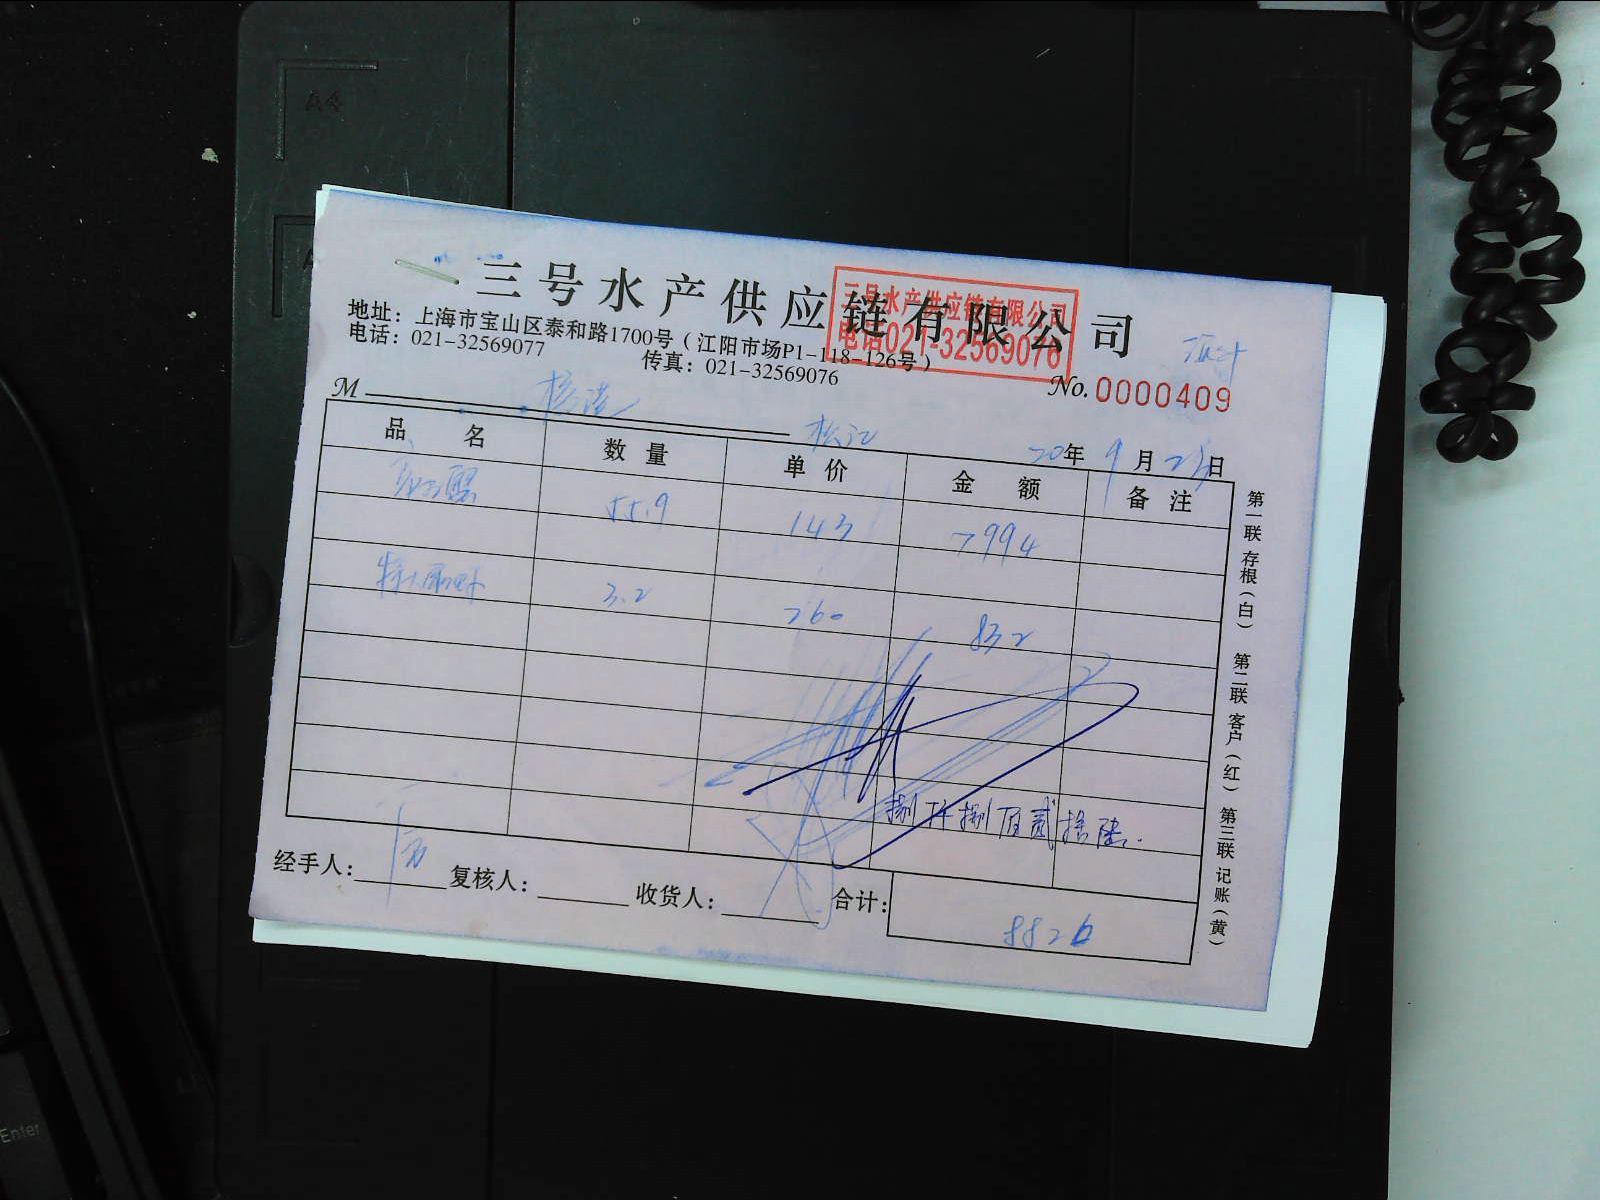 三号水产供应链有限公司
三号水产供应链有限公司
电话021-32569076
地址：上海市宝山区泰和路1700号（江阳市场P1-118-126号）
电话：021-32569077 传真：021-32569076
No.0000409
M
松江 20年9月23日
品名 数量 单价 金额 备注
55.9 143 7994
3.2 260 832
捌仟捌佰贰拾陆.
经手人： 复核人： 收货人： 合计：8826
第一联 存根（白） 第二联 客户（红） 第三联 记账（黄）
A4
Enter